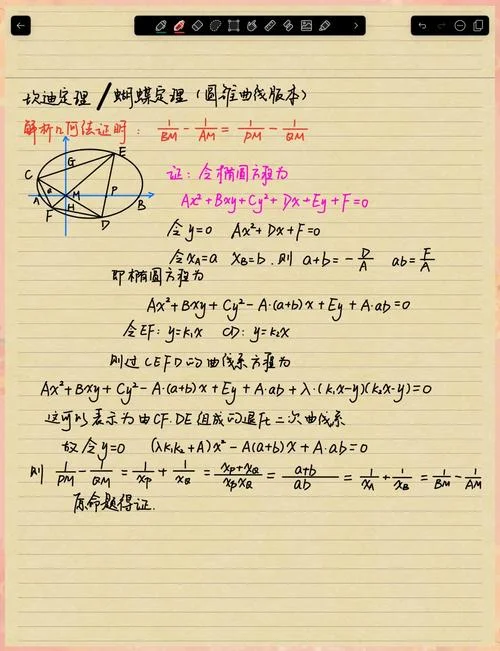 坎迪定理/蝴蝶定理(圆锥曲线版本)
解析几何法证明: 1/BM - 1/AM = 1/PM - 1/QM
E
G
C
M
P
A
Q
B
F
H
D
证:令椭圆方程为
Ax²+Bxy+Cy²+Dx+Ey+F=0
令y=0 Ax²+Dx+F=0
令x_A=a x_B=b,则 a+b=-D/A ab=F/A
即椭圆方程为
Ax²+Bxy+Cy²-A·(a+b)x+Ey+A·ab=0
令EF: y=k₁x CD: y=k₂x
则过CEFD的曲线系方程为
Ax²+Bxy+Cy²-A·(a+b)x+Ey+A·ab+λ·(k₁x-y)(k₂x-y)=0
这可以表示为由CF.DE组成的退化二次曲线系
故令y=0 (λk₁k₂+A)x²-A(a+b)x+A·ab=0
则 1/PM - 1/QM = 1/x_P + 1/x_Q = (x_P+x_Q)/(x_P x_Q) = (a+b)/(ab) = 1/x_A + 1/x_B = 1/BM - 1/AM
原命题得证.